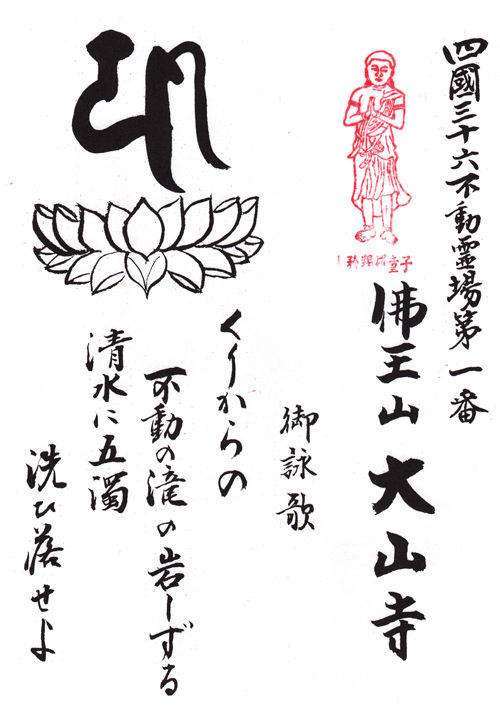 四國三十六不動霊場第一番
佛王山 大山寺
御詠歌
くりからの
不動の滝の岩しずる
清水に五濁
洗ひ落せよ